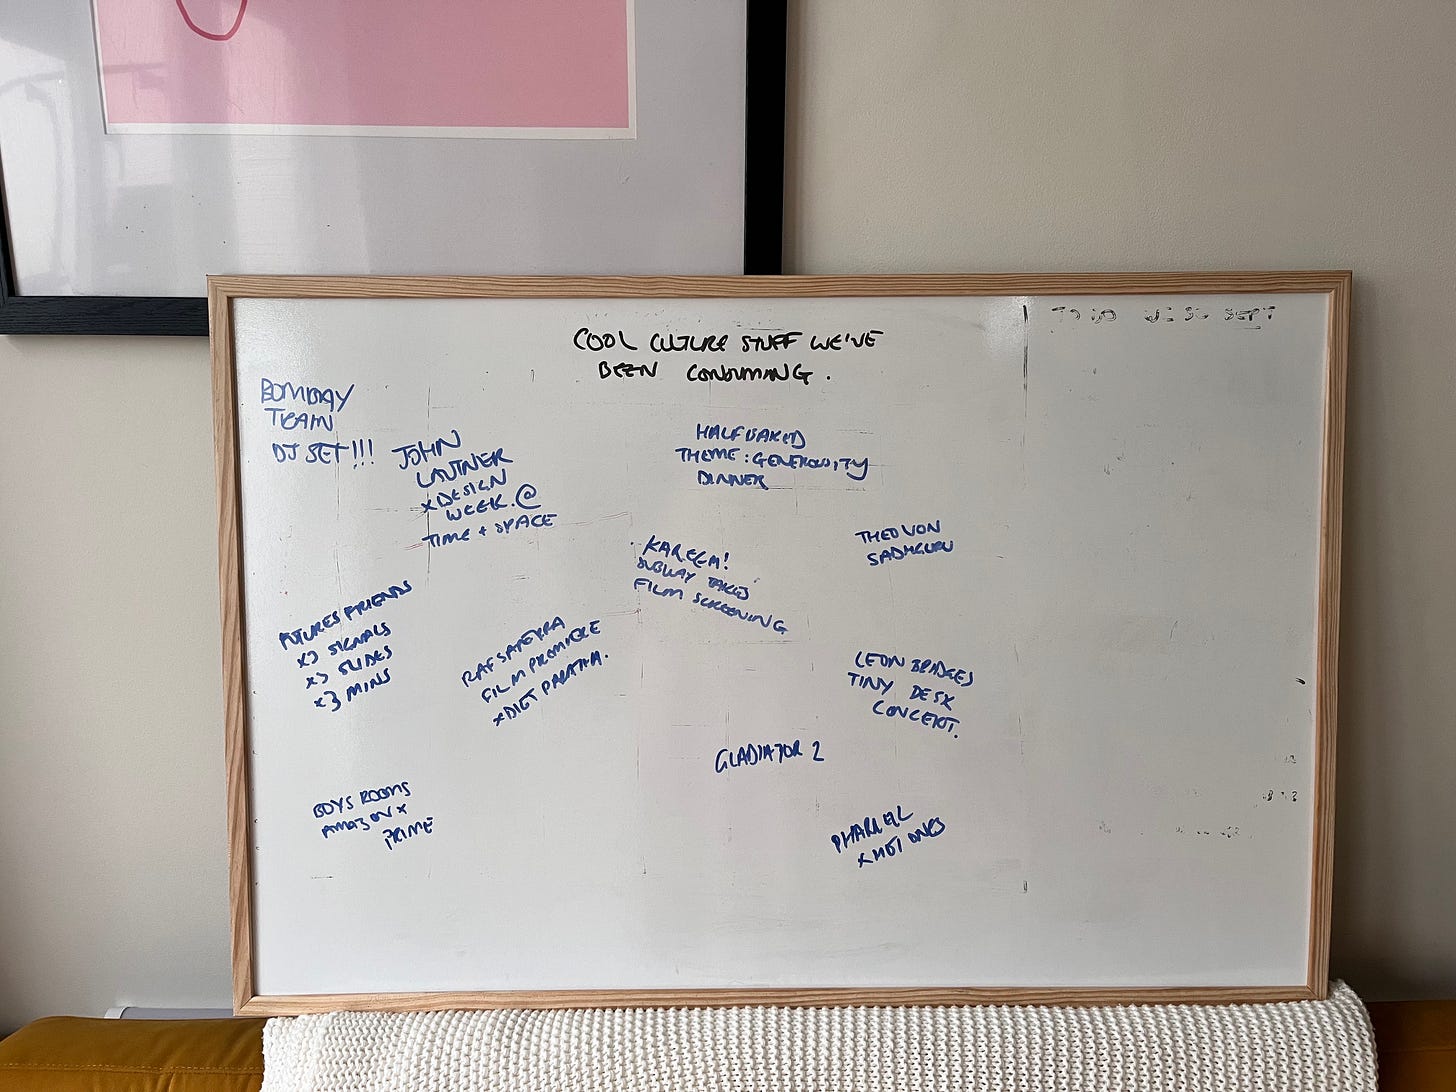 COOL CULTURE STUFF WE'VE
BEEN CONSUMING.
BOMBAY
TRAIN
DJ SET!!!
JOHN
LAUTNER
x DESIGN
WEEK. @
TIME + SPACE
HALF BAKED
THEME: GENEROSITY
DINNER
THEO VON
SADHGURU
KAREEM!
SUBWAY TAKES
FILM SCREENING
FUTURES FRIENDS
x3 SIGNALS
x3 SLIDES
x3 MINS
RAF SATEYRA
FILM PREMIERE
x DIET PARATHA.
LEON BRIDGES
TINY DESK
CONCERT.
GLADIATOR 2
BOYS ROOMS
AMAZON x
PRIME
PHARRELL
x HOT ONES
TO DO SEPT